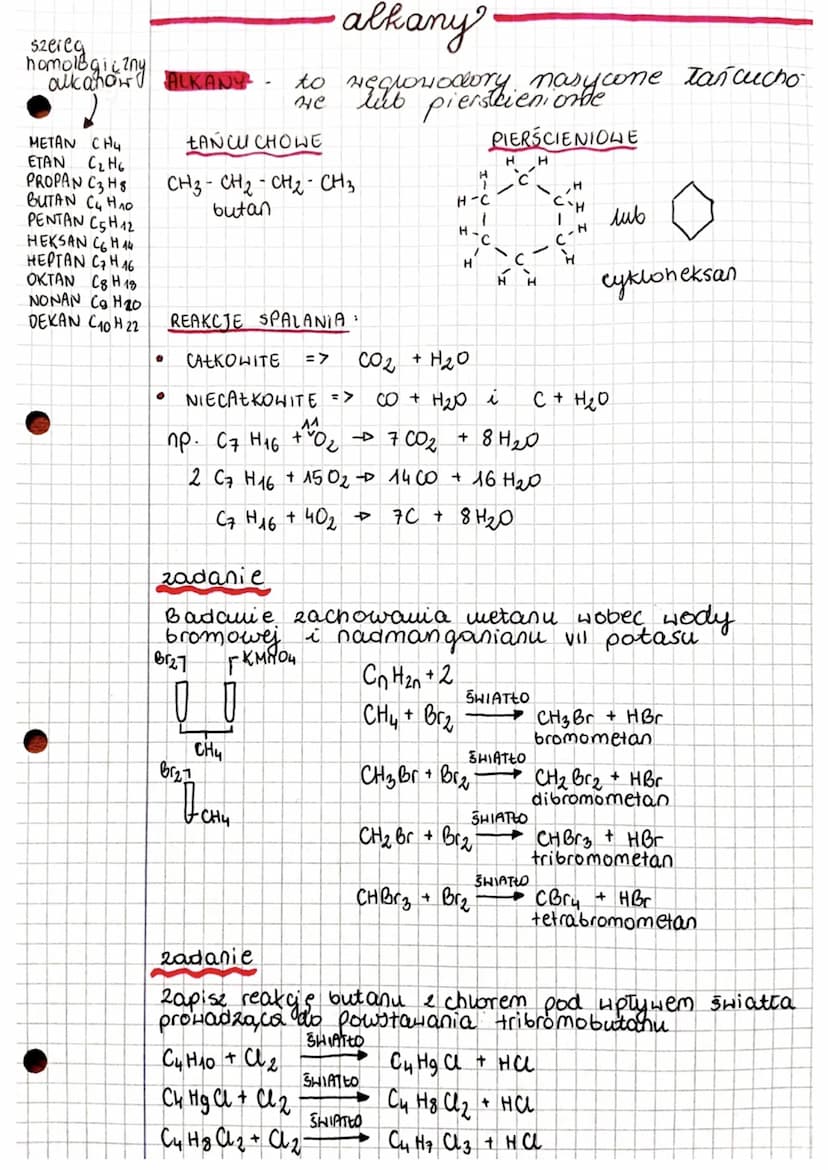 alkany
szereg
homologiczny
alkanów
METAN CH4
ETAN C2H6
PROPAN C3H8
BUTAN C4H10
PENTAN C5H12
HEKSAN C6H14
HEPTAN C7H16
OKTAN C8H18
NONAN C9H20
DEKAN C10H22
ALKANY - to węglowodory nasycone łańcucho-
we lub pierścieniowe
ŁAŃCUCHOWE
CH3 - CH2 - CH2 - CH3
butan
PIERŚCIENIOWE
H H
H C H
H-C C-H
H-C C-H
H C H
H H
lub
cykloheksan
REAKCJE SPALANIA:
• CAŁKOWITE => CO2 + H2O
• NIECAŁKOWITE => CO + H2O i C + H2O
np. C7H16 + 11O2 → 7CO2 + 8H2O
2 C7H16 + 15O2 → 14CO + 16H2O
C7H16 + 4O2 → 7C + 8H2O
zadanie
Badanie zachowania metanu wobec wody
bromowej i nadmanganianu VII potasu
Br2
KMnO4
CH4
Br2
CH4
CnH2n+2
CH4 + Br2 ŚWIATŁO → CH3Br + HBr
bromometan
CH3Br + Br2 ŚWIATŁO → CH2Br2 + HBr
dibromometan
CH2Br + Br2 ŚWIATŁO → CHBr3 + HBr
tribromometan
CHBr3 + Br2 ŚWIATŁO → CBr4 + HBr
tetrabromometan
zadanie
Zapisz reakcję butanu z chlorem pod wpływem światła
prowadzącą do powstawania tribromobutanu
C4H10 + Cl2 ŚWIATŁO → C4H9Cl + HCl
C4H9Cl + Cl2 ŚWIATŁO → C4H8Cl2 + HCl
C4H8Cl2 + Cl2 ŚWIATŁO → C4H7Cl3 + HCl